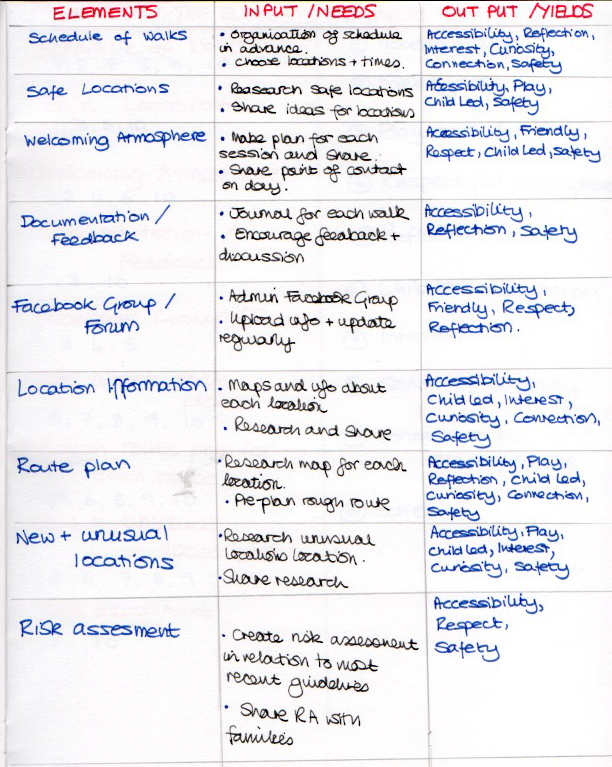 ELEMENTS
INPUT / NEEDS
OUT PUT / YIELDS
Schedule of walks
• Organisation of schedule
in advance.
• Choose locations + times.
Accessibility, Reflection,
Interest, Curiosity,
Connection, Safety
Safe Locations
• Reasearch safe locations
• Share ideas for locations
Accessibility, Play,
Child Led, Safety
Welcoming Atmosphere
• Make plan for each
session and share.
• Share point of contact
on day.
Accessibility, Friendly,
Respect, Child Led, Safety
Documentation /
Feedback
• Journal for each walk
• Encourage feedback +
discussion
Accessibility,
Reflection, Safety
Facebook Group /
Forum
• Admin Facebook Group
• Upload info + update
regularly
Accessibility,
Friendly, Respect,
Reflection.
Location Information
• Maps and info about
each location
• Research and Share
Accessibility,
Child led, Interest,
Curiosity, Connection,
Safety
Route plan
• Research map for each
location.
• Pre-plan rough route
Accessibility, Play,
Reflection, Child Led,
Curiosity, Connection,
Safety
New + unusual
locations
• Research unusual
locations location.
• Share research
Accessibility, Play,
Child led, Interest,
Curiosity, Safety
Risk assesment
• Create risk assesment
in relation to most
recent guidelines
• Share RA with
families
Accessibility,
Respect,
Safety